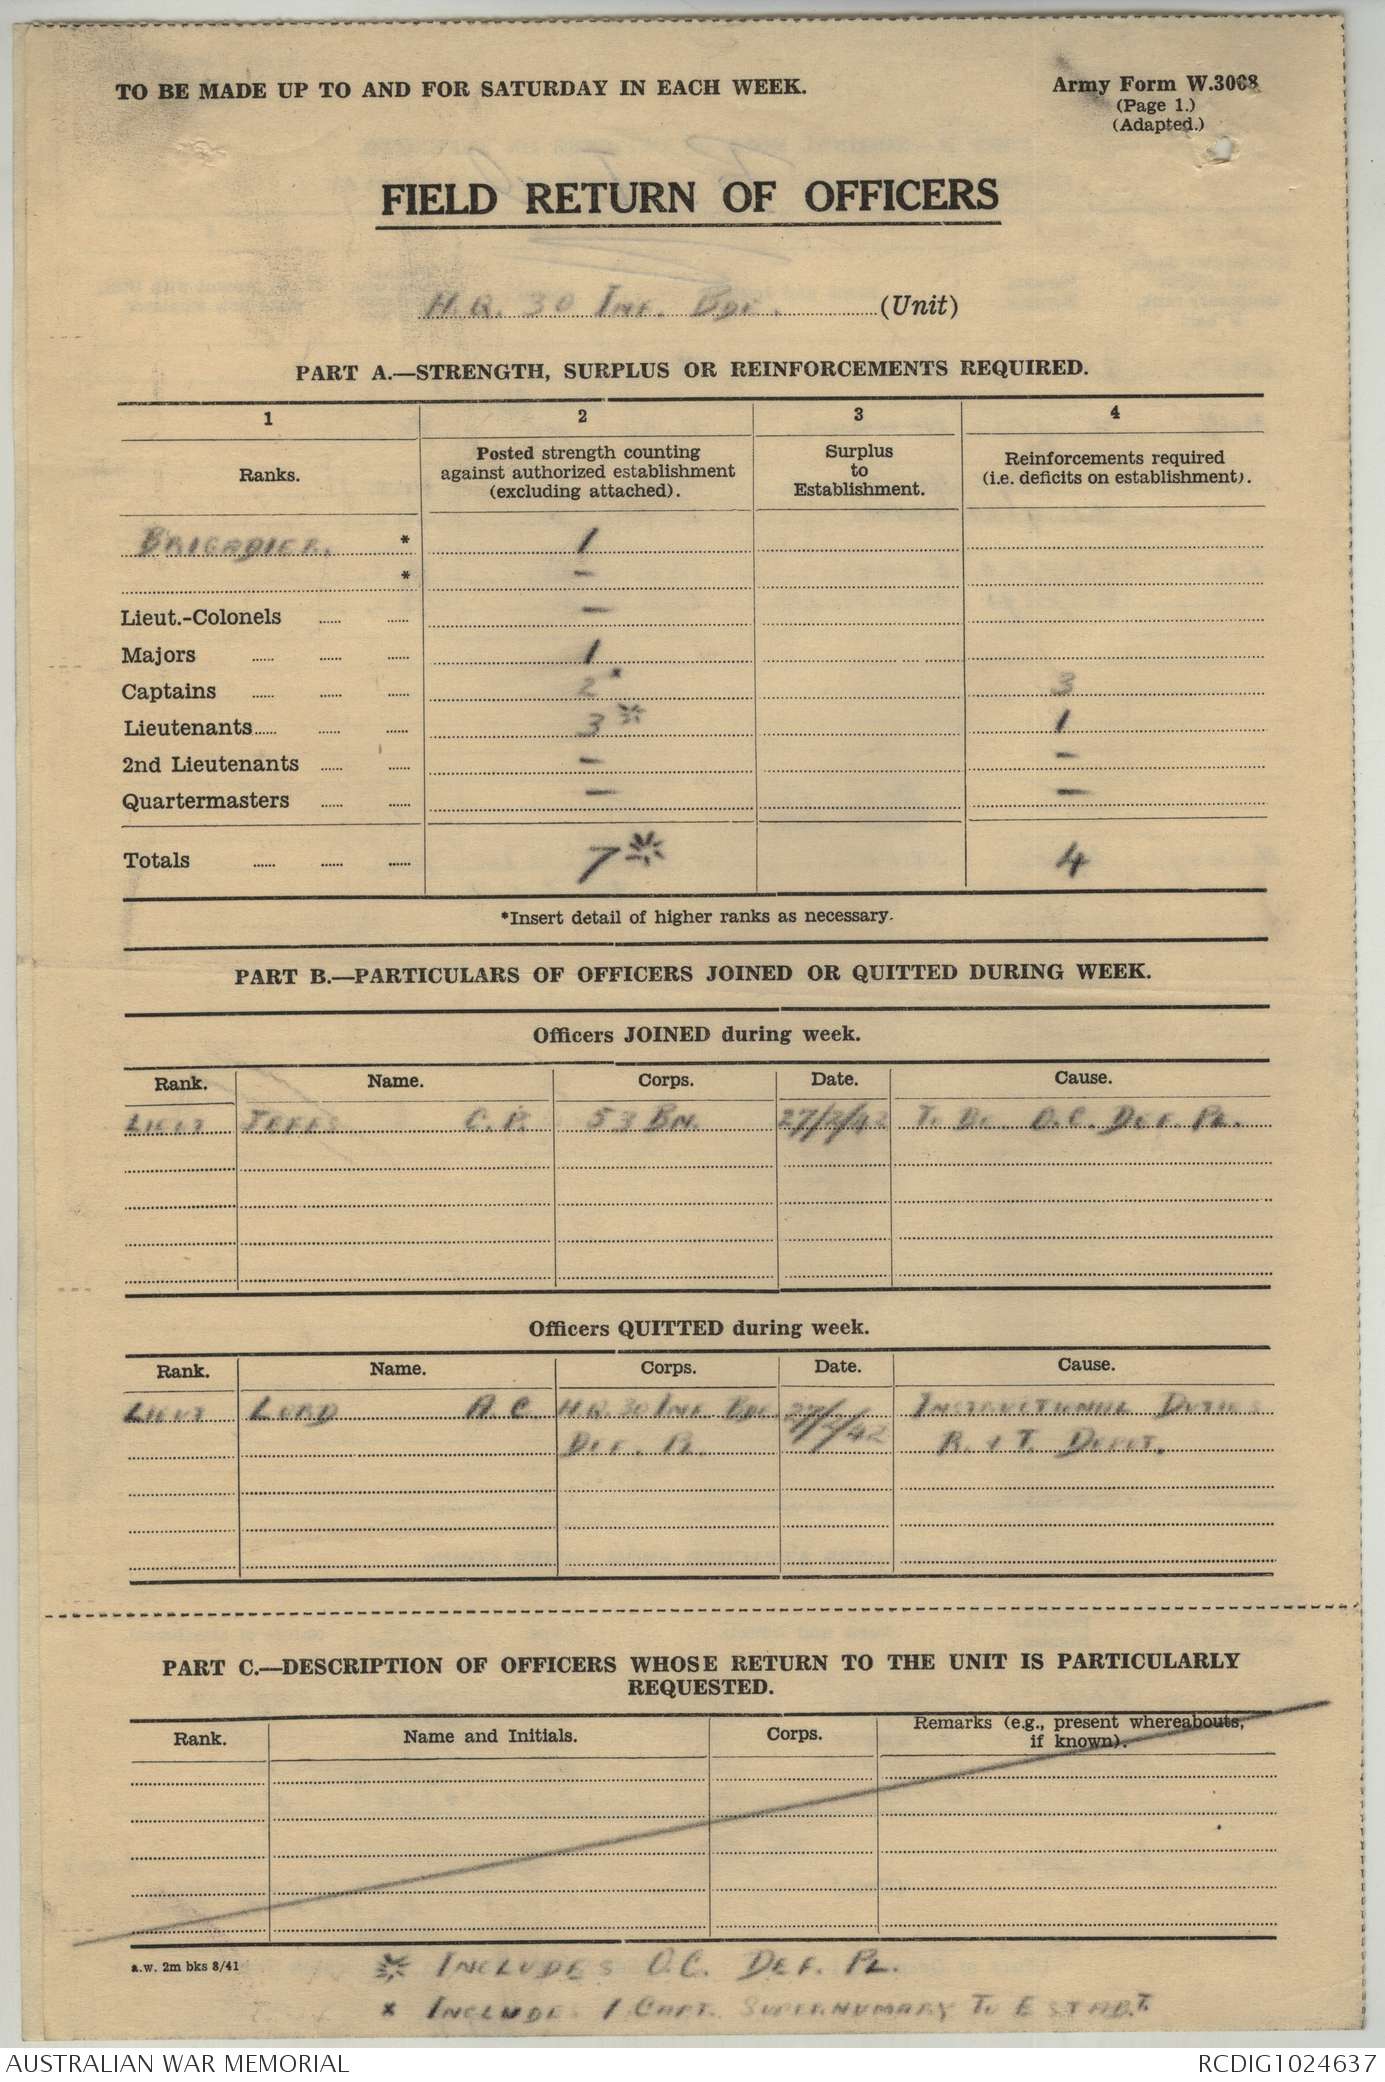 TO BE MADE UP TO AND FOR SATURDAY IN EACH WEEK.
Army Form W.3008
(Page 1.)
(Adapted.)
FIELD RETURN OF OFFICERS
H.Q. 30 INF. BDE. (Unit)
PART A.—STRENGTH, SURPLUS OR REINFORCEMENTS REQUIRED.
1 2 3 4
Ranks. Posted strength counting against authorized establishment (excluding attached). Surplus to Establishment. Reinforcements required (i.e. deficits on establishment).
BRIGADIER. * 1
* –
Lieut.-Colonels –
Majors 1
Captains 2 x 3
Lieutenants 3 ※ 1
2nd Lieutenants – –
Quartermasters – –
Totals 7 ※ 4
*Insert detail of higher ranks as necessary.
PART B.—PARTICULARS OF OFFICERS JOINED OR QUITTED DURING WEEK.
Officers JOINED during week.
Rank. Name. Corps. Date. Cause.
LIEUT JEFFS C.P. 53 BN. 27/2/42 TO BE O.C. DEF. PL.
Officers QUITTED during week.
Rank. Name. Corps. Date. Cause.
LIEUT LORD A.C. H.Q. 30 INF. BDE 27/2/42 INSTRUCTIONAL DUTIES
DEF. PL. R. & T. DEPOT.
PART C.—DESCRIPTION OF OFFICERS WHOSE RETURN TO THE UNIT IS PARTICULARLY
REQUESTED.
Rank. Name and Initials. Corps. Remarks (e.g., present whereabouts, if known).
a.w. 2m bks 8/41
※ INCLUDES O.C. DEF. PL.
x INCLUDES 1 CAPT. SUPERNUMARY TO ESTAB.T.
AUSTRALIAN WAR MEMORIAL
RCDIG1024637